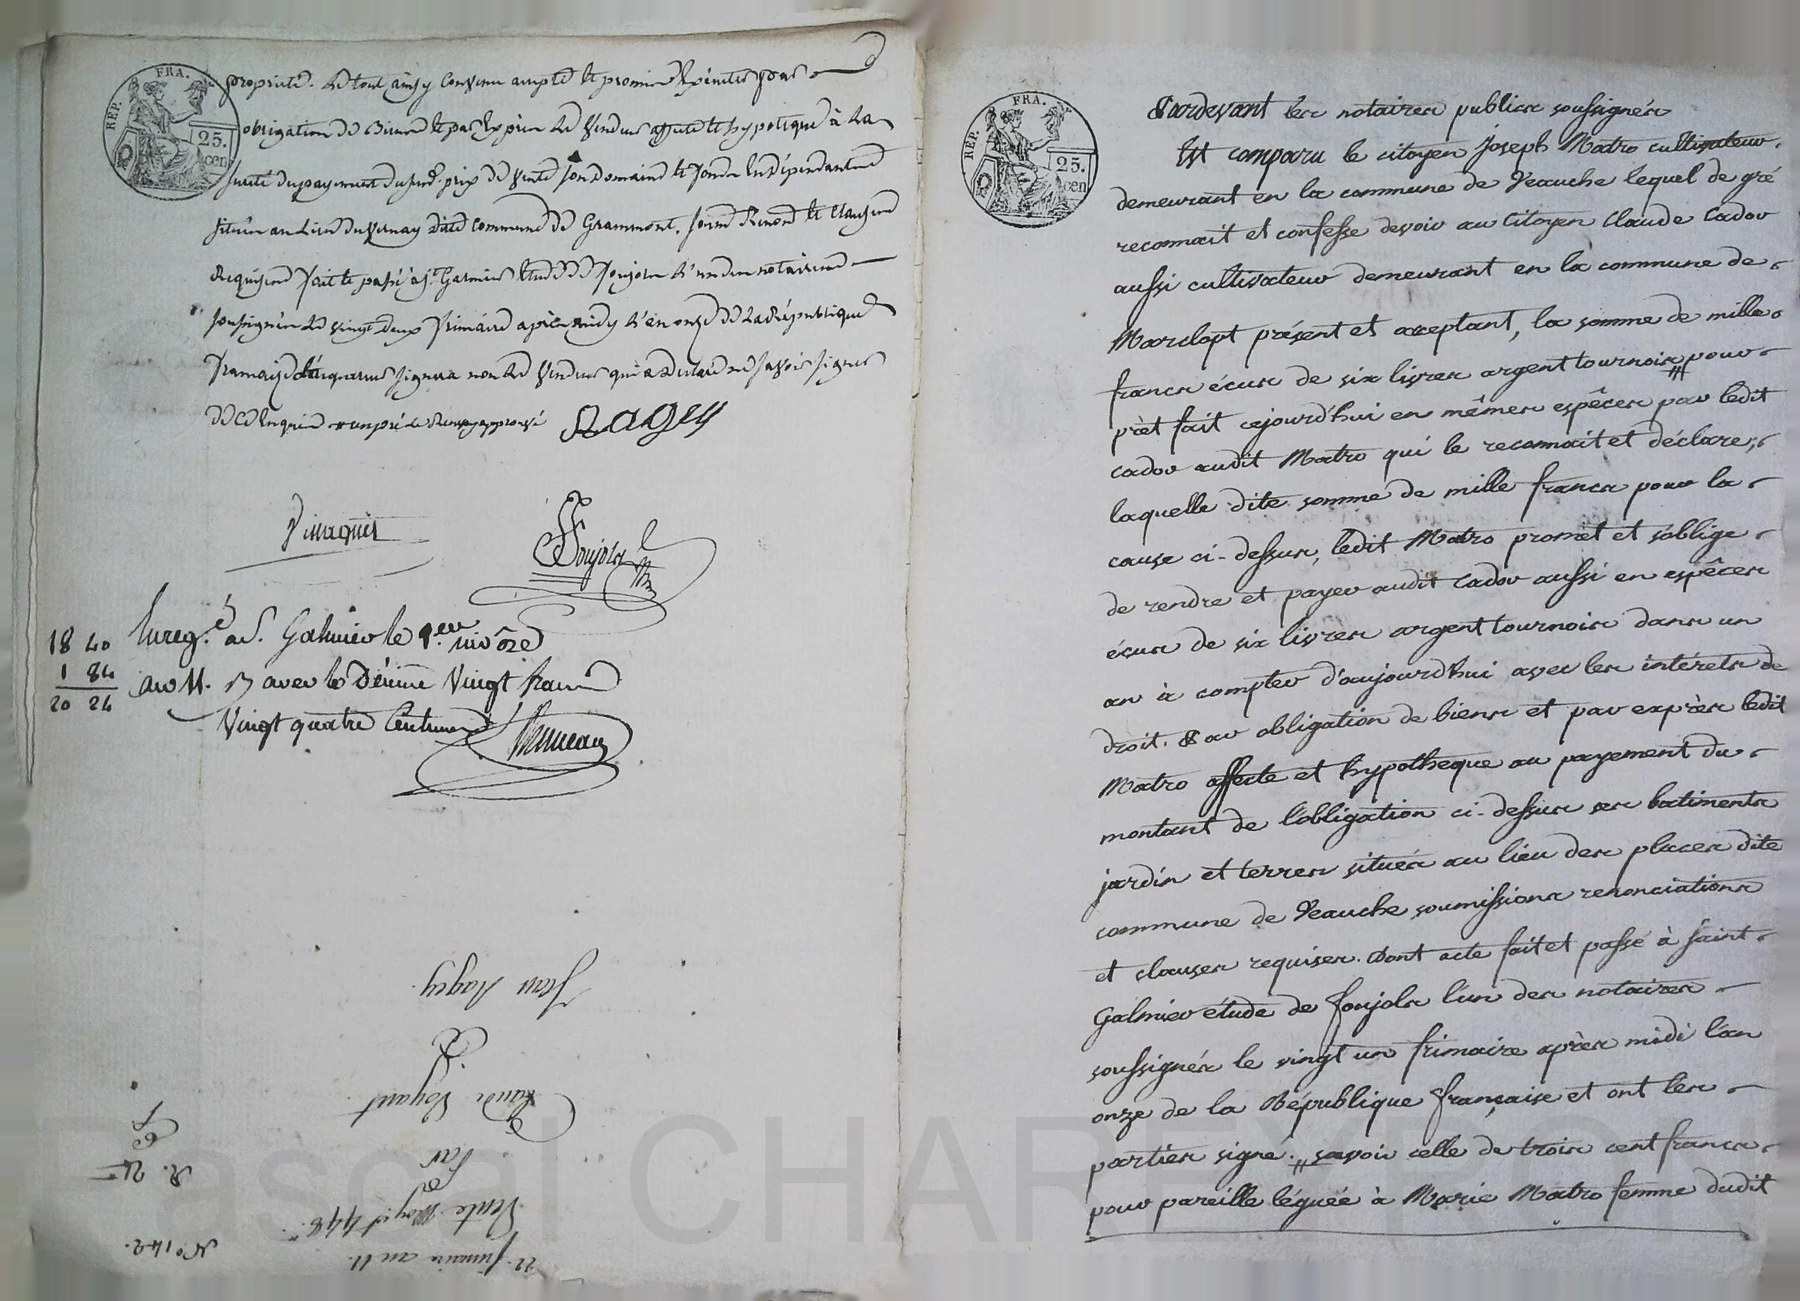 REP. FRA.
25.
cen
propriété. Le tout ainsy convenu accepté et promis exécuter par
obligation de Biens et par exprès led. Vendeur affecte et hypotèque à la
sureté du payement dud. prix de vente son Domaine et fonds en dépendants
situés au lieu du Vernay dite commune de Grammont. soumis Renon. et Clauses
Requises fait et passé à St. Galmier Etude de Joujols l'un des notaires
soussignés Le vingt deux frimaire après midy l'an onze de la République
française l'acquereur signera non led Vendeur qui a déclaré ne savoir signer
de ce Enquis approuvé Ragey
Vinaquis
Joujols
18 40
1 84
20 24
Enreg.é à S. Galmier le 1.er nivôse
an 11. R avec le Décime Vingt francs
Vingt quatre Centimes
Jean Ragey.
à
Claude Voyant
Par
Vente Moy.t 448.
22. frimaire an 11.
R. 21
N.o 142.
REP. FRA.
25.
cen
Pardevant les notaires publics soussignés
Est comparu le citoyen Joseph Matro cultivateur
demeurant en la commune de Veauche lequel de gré
reconnait et confesse devoir au Citoyen Claude Cadov
aussi cultivateur demeurant en la commune de
Marclopt présent et acceptant, la somme de mille
francs écus de six livres argent tournois pour
prèt fait cejourd'hui en mêmes espêces par ledit
cadov audit Matro qui le reconnait et déclare,
laquelle dite somme de mille francs pour la
cause ci-dessus, ledit Matro promet et s'oblige
de rendre et payer audit Cadov aussi en espêces
écus de six livres argent tournois dans un
an à compter d'aujourd'hui avec les intérets de
droit. Par obligation de biens et par exprès ledit
Matro affecte et hypotheque au payement du
montant de l'obligation ci-dessus ses batiments
jardin et terres situés au lieu des places dite
commune de Veauche soumissions renonciations
et clauses requises. Dont acte fait et passé à saint
Galmier étude de Joujols l'un des notaires
soussignés le vingt un frimaire après midi l'an
onze de la République française et ont les
parties signé. savoir celle de trois cent francs
pour pareille léguée à Marie Matro femme dudit
Pascal CHAREYRON